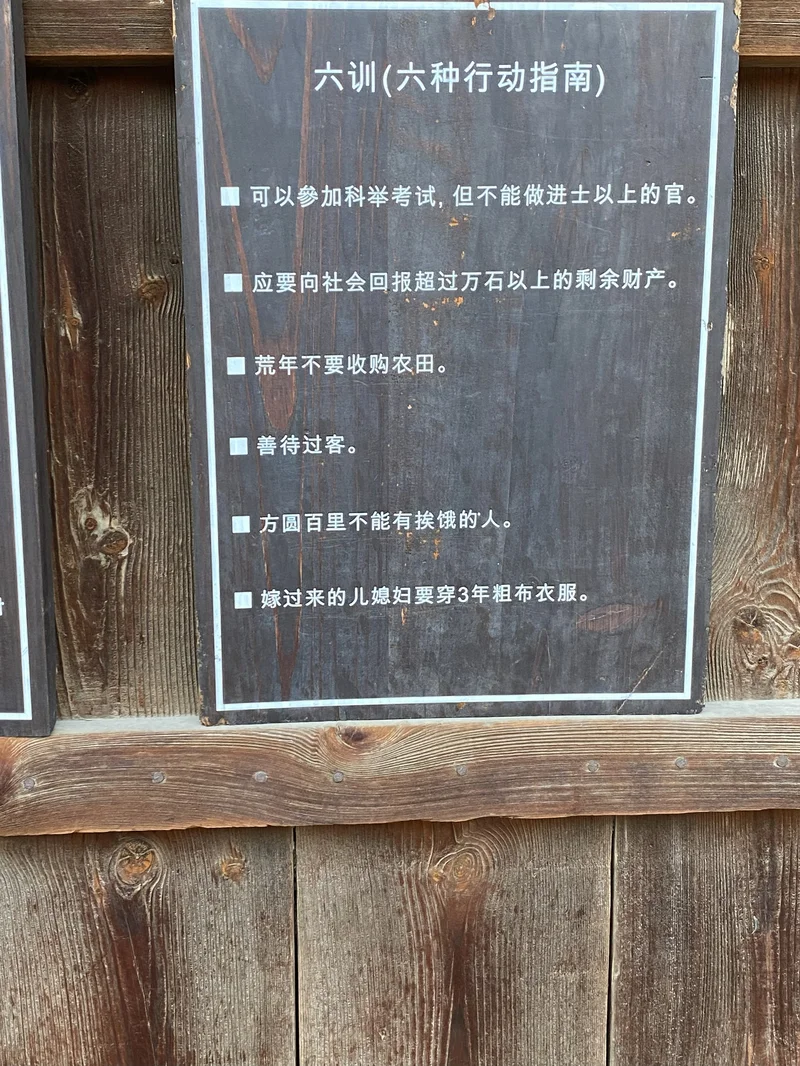 六训(六种行动指南)
■ 可以參加科举考试, 但不能做进士以上的官。
■ 应要向社会回报超过万石以上的剩余财产。
■ 荒年不要收购农田。
■ 善待过客。
■ 方圆百里不能有挨饿的人。
■ 嫁过来的儿媳妇要穿3年粗布衣服。